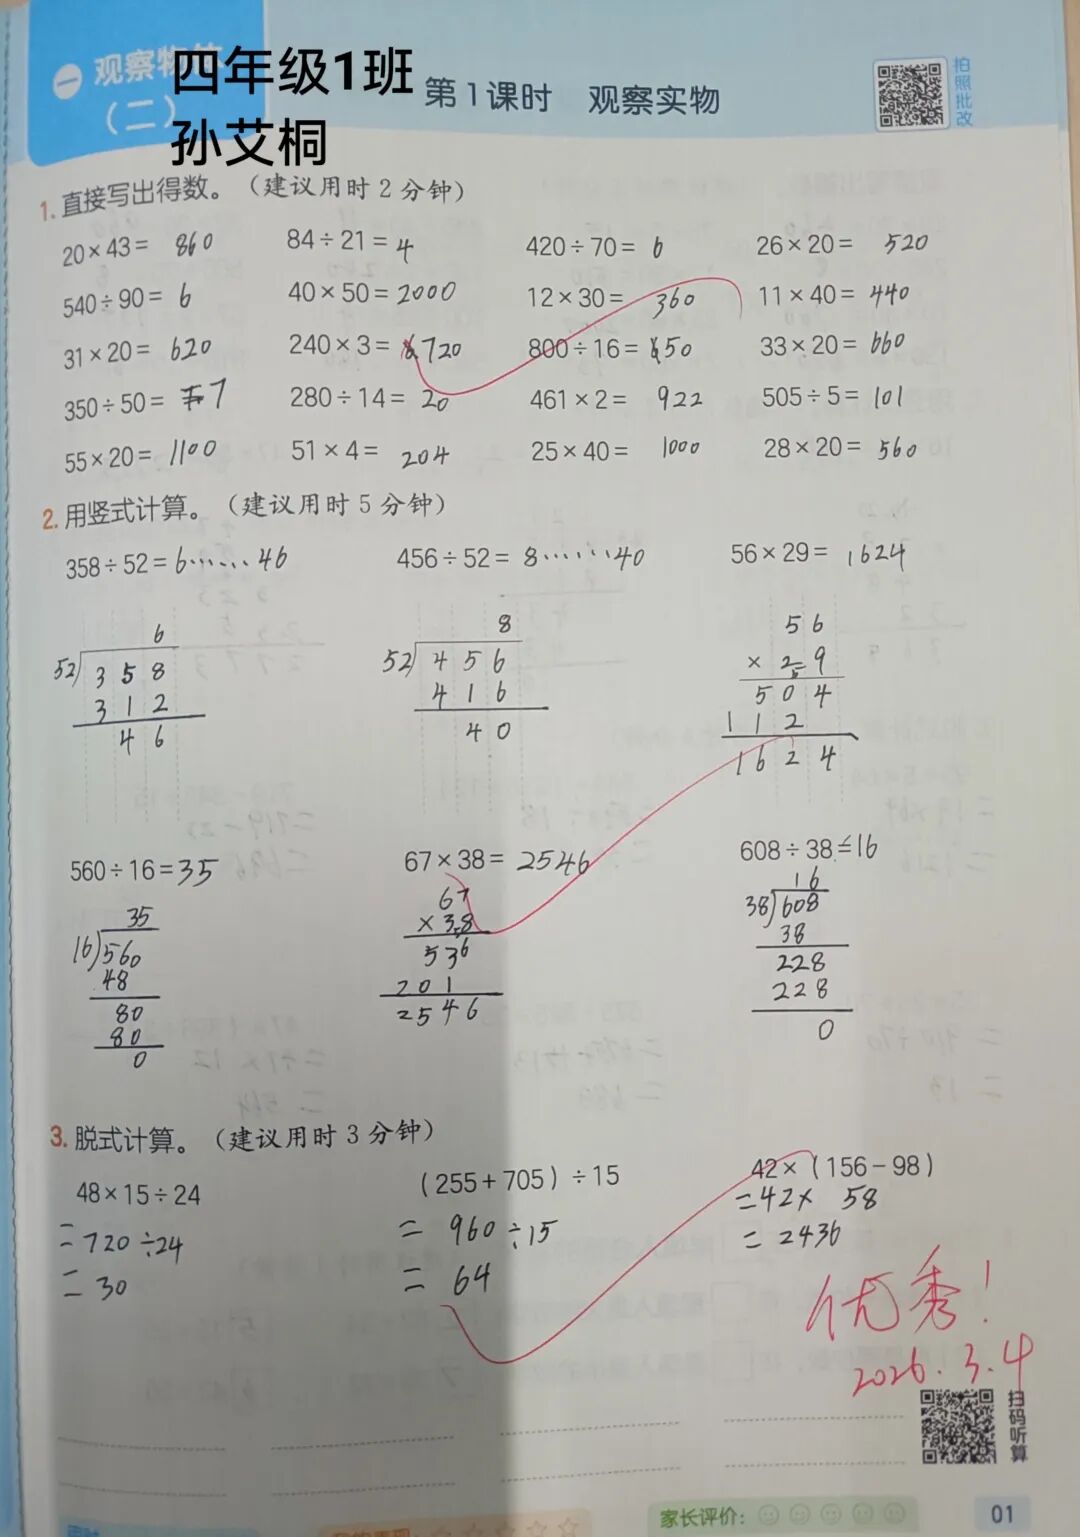 一 观察物体
（二）
四年级1班
孙艾桐
第1课时 观察实物
拍照批改
1.直接写出得数。（建议用时2分钟）
20×43= 860 84÷21=4 420÷70=6 26×20= 520
540÷90=6 40×50=2000 12×30= 360 11×40=440
31×20= 620 240×3=720 800÷16=50 33×20=660
350÷50=7 280÷14=20 461×2= 922 505÷5=101
55×20=1100 51×4= 204 25×40= 1000 28×20=560
2.用竖式计算。（建议用时5分钟）
358÷52=6……46 456÷52=8……40 56×29=1624
6 8 56
52 358 52 456 ×29
312 416 504
46 40 112
1624
560÷16=35 67×38=2546 608÷38=16
35 67 16
16 560 ×38 38 608
48 536 38
80 201 228
80 2546 228
0 0
3.脱式计算。（建议用时3分钟）
48×15÷24 （255+705）÷15 42×（156-98）
=720÷24 =960÷15 =42×58
=30 =64 =2436
优秀！
2026.3.4
扫码听算
家长评价：
01